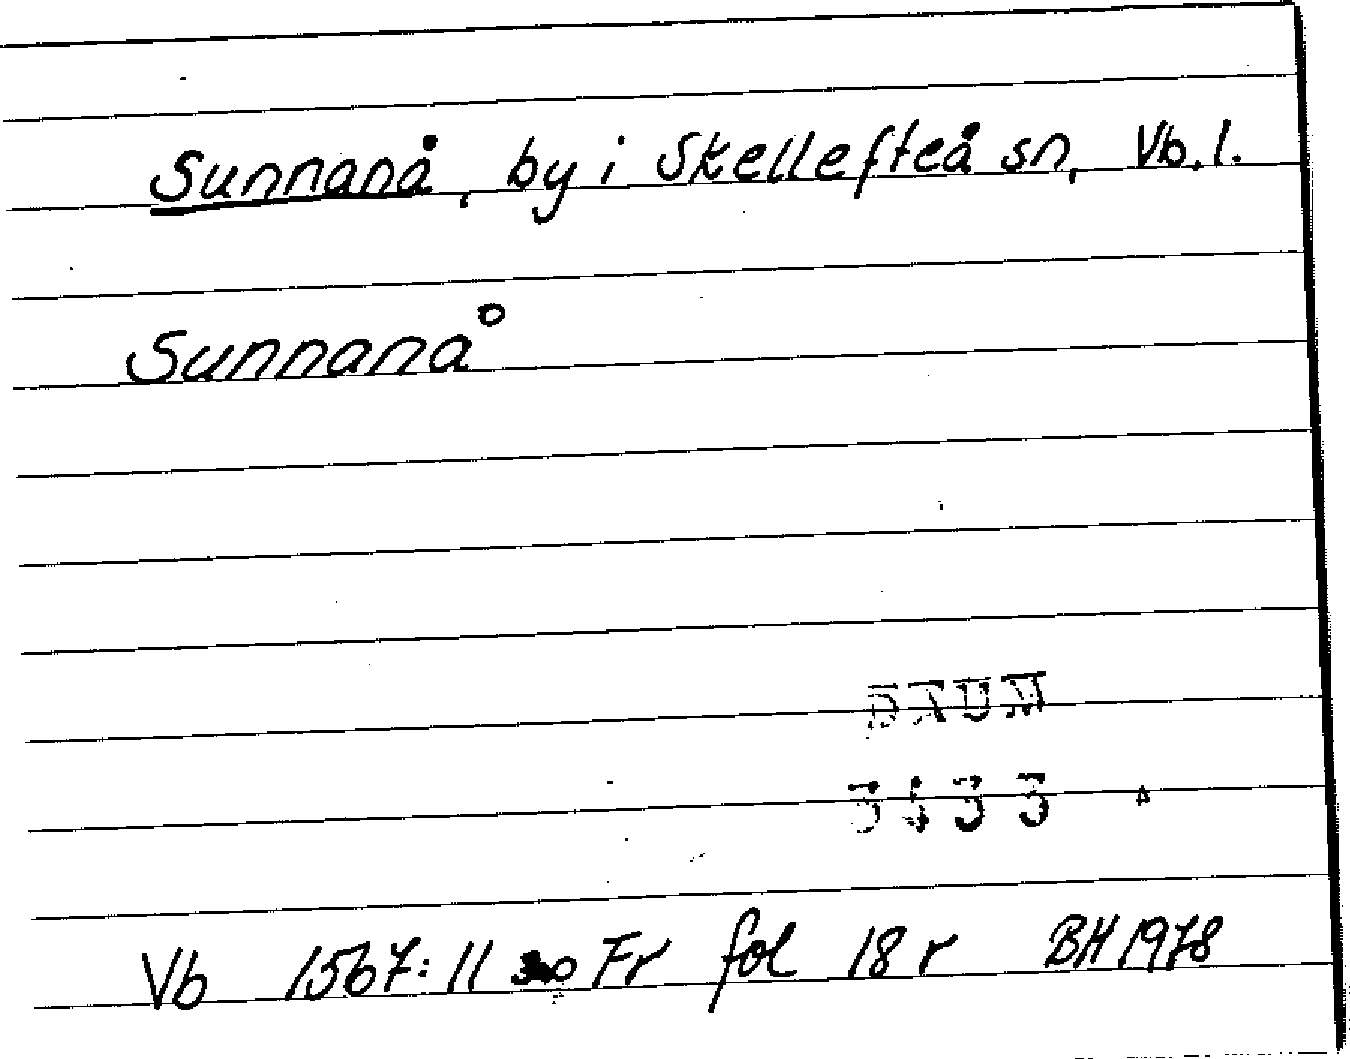 Sunnanå, by i Skellefteå sn, Vb. l.
Sunnanå
DAUM
3433
Vb 1567:11 Fr fol 18 r BH 1978